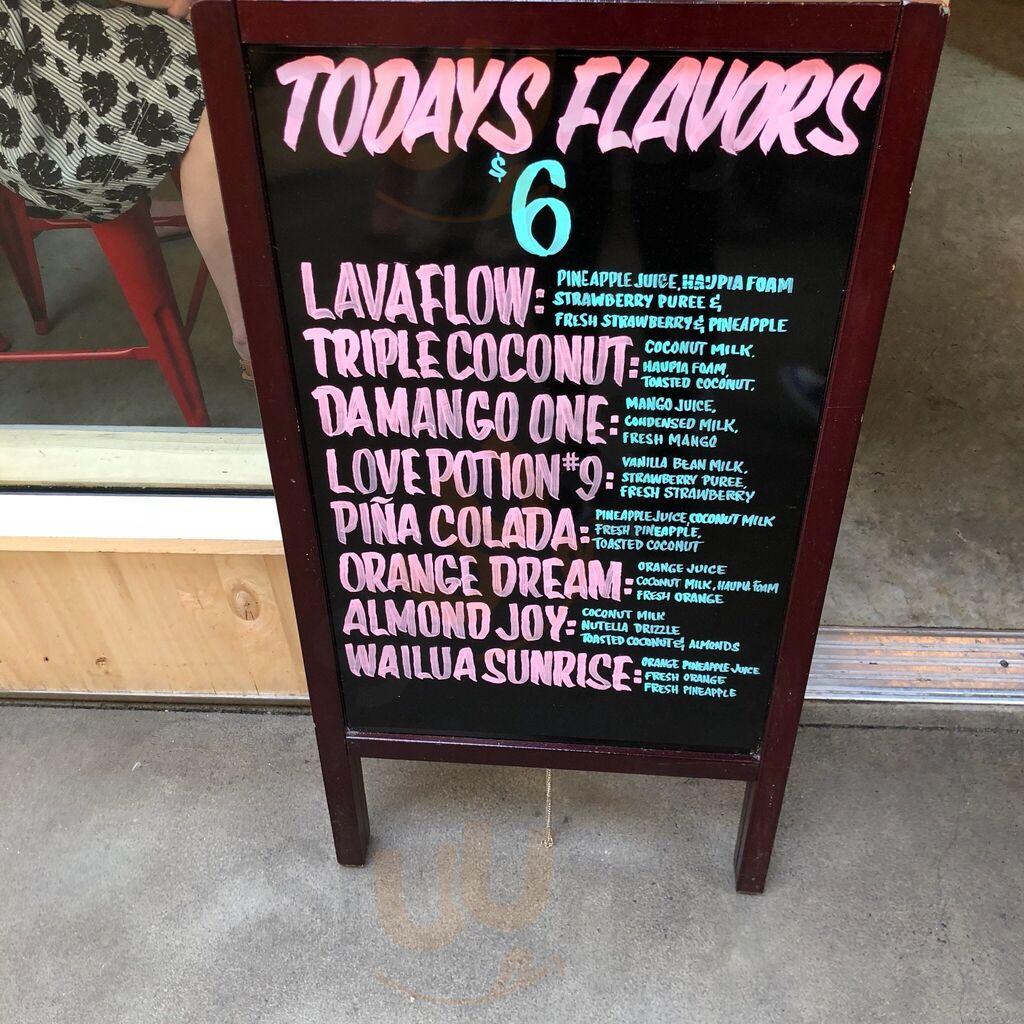 TODAYS FLAVORS
$6
LAVA FLOW: PINEAPPLE JUICE, HAUPIA FOAM
STRAWBERRY PUREE &
FRESH STRAWBERRY & PINEAPPLE
TRIPLE COCONUT: COCONUT MILK,
HAUPIA FOAM,
TOASTED COCONUT,
DAMANGO ONE: MANGO JUICE,
CONDENSED MILK,
FRESH MANGO
LOVE POTION #9: VANILLA BEAN MILK,
STRAWBERRY PUREE,
FRESH STRAWBERRY
PIÑA COLADA: PINEAPPLE JUICE, COCONUT MILK
FRESH PINEAPPLE,
TOASTED COCONUT
ORANGE DREAM: ORANGE JUICE
COCONUT MILK, HAUPIA FOAM
FRESH ORANGE
ALMOND JOY: COCONUT MILK
NUTELLA DRIZZLE
TOASTED COCONUT & ALMONDS
WAILUA SUNRISE: ORANGE PINEAPPLE JUICE
FRESH ORANGE
FRESH PINEAPPLE